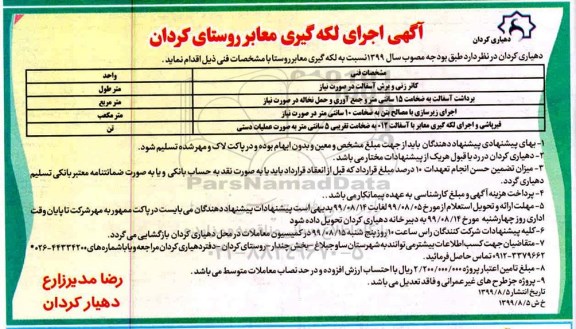 آگهی اجرای لکه گیری معابر روستای کردان
دهیاری کردان
دهیاری کردان در نظر دارد طبق بودجه مصوب سال ۱۳۹۹ نسبت به لکه گیری معابر روستا با مشخصات فنی ذیل اقدام نماید.
مشخصات فنی واحد
کاتر زنی و برش آسفالت در صورت نیاز متر طول
برداشت آسفالت به ضخامت ۱۵ سانتی متر و جمع آوری و حمل نخاله در صورت نیاز متر مربع
اجرای زیرسازی با مصالح بتن به ضخامت ۱۰ سانتی متر در صورت نیاز متر مکعب
قیرپاشی و اجرای لکه گیری معابر با آسفالت ۱۲-۰ به ضخامت تقریبی ۵ سانتی متر به صورت عملیات دستی تن
۱- بهای پیشنهادی پیشنهاد دهندگان باید از جهت مبلغ مشخص و معین و بدون ابهام بوده و در پاکت لاک و مهر شده تسلیم شود.
۲- دهیاری کردان در رد یا قبول هریک از پیشنهادات مختار می باشد.
۳- میزان تضمین حسن انجام تعهدات ۱۰ درصد مبلغ قرارداد که قبل از انعقاد قرارداد باید یا به صورت نقد به حساب بانکی و یا به صورت ضمانتنامه معتبر بانکی تسلیم
دهیاری گردد.
۴- پرداخت هزینه آگهی و مبلغ کارشناسی به عهده پیمانکار می باشد.
۵- مهلت ارائه و تحویل استعلام از مورخ ۹۹/۰۸/۰۵ لغایت ۹۹/۰۸/۱۴ بدیهی است پیشنهادات پیشنهاد دهندگان می بایست در پاکت ممهور به مهر شرکت تا پایان وقت
اداری روز چهارشنبه مورخ ۹۹/۰۸/۱۴ به دبیرخانه دهیاری کردان تحویل داده شود
۶- کلیه پیشنهادات شرکت کنندگان راس ساعت ۱۰ روز پنج شنبه ۹۹/۰۸/۱۵ در کمیسیون معاملات در محل دهیاری کردان بازگشایی می گردد.
۷- متقاضیان جهت کسب اطلاعات بیشتر می توانند به شهرستان ساوجبلاغ - بخش چندار - روستای کردان - دفتر دهیاری کردان مراجعه و یا با شماره های ۰۲۶-۴۴۳۳۴۲۰۰
۰۹۱۲-۳۳۷۹۶۶۲ تماس حاصل فرمائید.
۸- مبلغ تامین اعتبار پروژه ۲/۲۰۰/۰۰۰/۰۰۰ ریال با احتساب ارزش افزوده و در حد نصاب معاملات متوسط می باشد.
۹- پروژه جز طرح های غیر عمرانی و فاقد تعدیل می باشد.
تاریخ انتشار ۱۳۹۹/۸/۵
خ ش ۱۳۹۹/۸/۵
رضا مدیرزارع
دهیار کردان
ParsNamadData